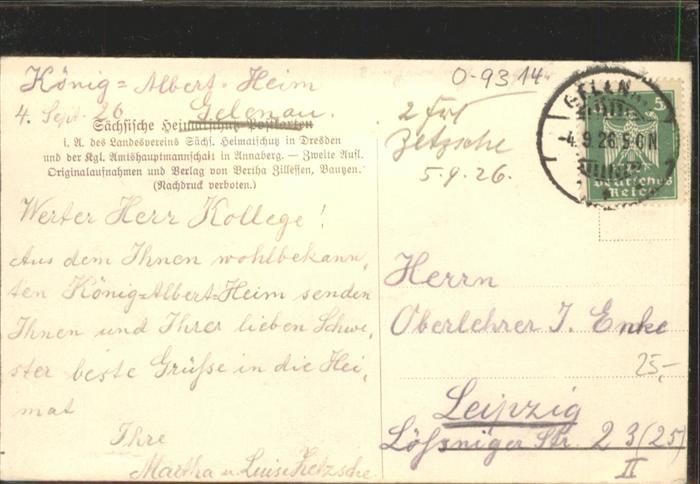 König=Albert-Heim
4. Sept. 26 Gelenau.
Sächsische Heimatschutz-Postkarten
i. A. des Landesvereins Sächs. Heimatschutz in Dresden
und der Kgl. Amtshauptmannschaft in Annaberg. — Zweite Aufl.
Originalaufnahmen und Verlag von Bertha Zillessen, Bautzen.
(Nachdruck verboten.)
Werter Herr Kollege!
Aus dem Ihnen wohlbekann,
ten König=Albert=Heim senden
Ihnen und Ihrer lieben Schwe,
ster beste Grüße in die Hei,
mat
Ihre
Martha u. Luise Zetzsche.
0-93 14
2
Zetzsche
5.9.26.
-4.9.26.5-6N
5
Deutsches
Reich
Herrn
Oberlehrer J. Enke
25,-
Leipzig
Lößniger Str. 23 (25)
II